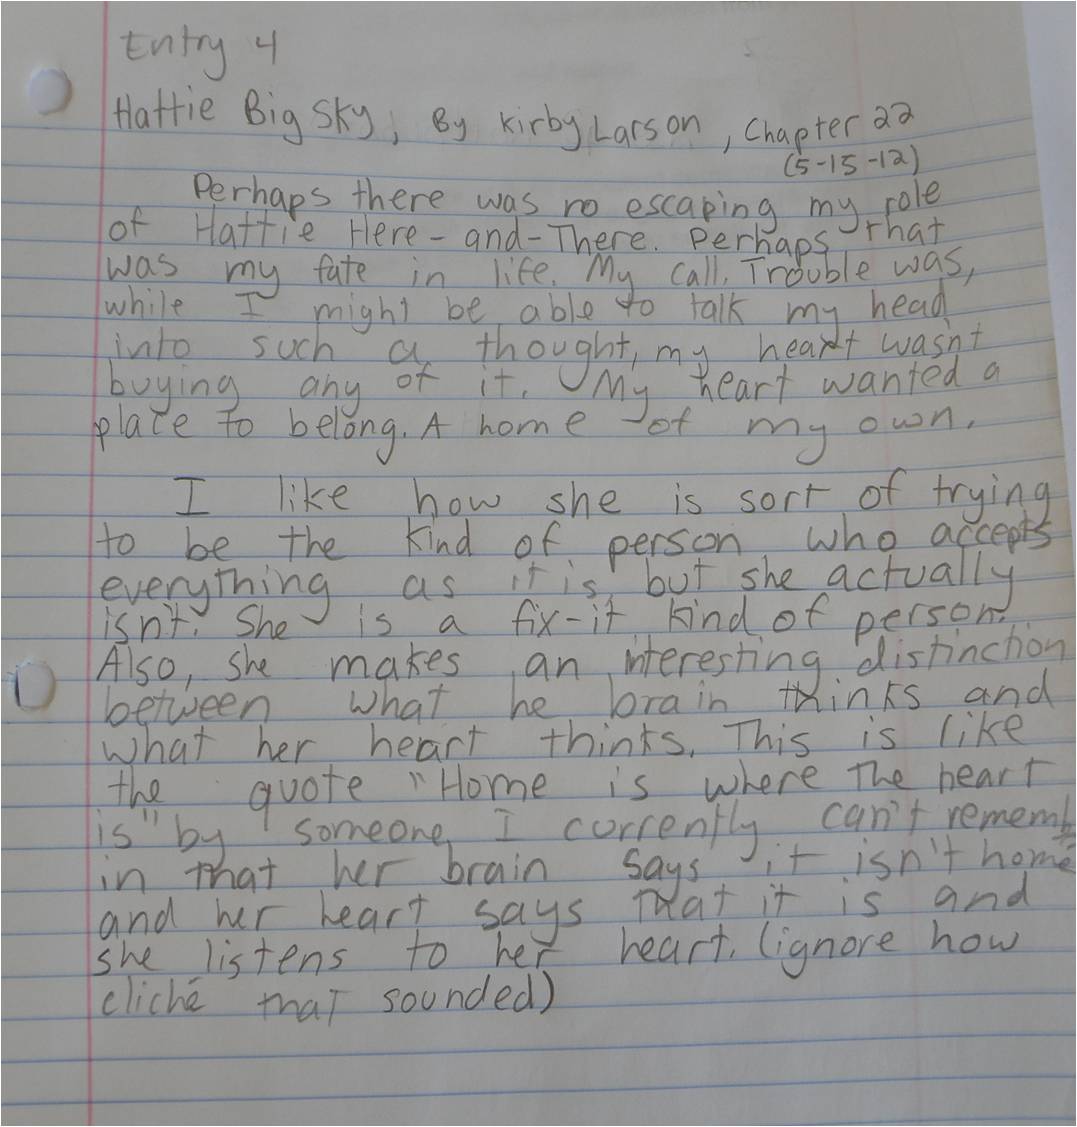 Entry 4
Hattie Big Sky, By Kirby Larson, Chapter 22
(5-15-12)
Perhaps there was no escaping my role
of Hattie Here-and-There. Perhaps that
was my fate in life. My call. Trouble was,
while I might be able to talk my head
into such a thought, my heart wasn't
buying any of it. My heart wanted a
place to belong. A home of my own.
I like how she is sort of trying
to be the kind of person who accepts
everything as it is, but she actually
isn't. She is a fix-it kind of person.
Also, she makes an interesting distinction
between what he brain thinks and
what her heart thinks. This is like
the quote "Home is where the heart
is" by someone I currently can't rememb
in that her brain says it isn't home
and her heart says that it is and
she listens to her heart. (ignore how
cliché that sounded)